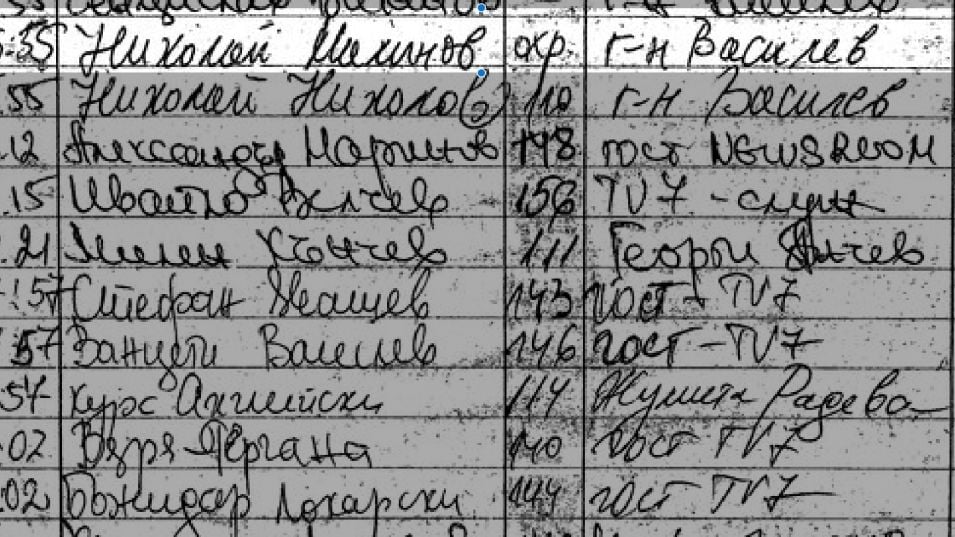 55 Николай Малинов окр. г-н Василев
55 Николай Николов 110 г-н Василев
12 Александър Мартинов 148 гост NEWSROOM
15 Ивайло 156 TV7 -
21 Милен Кънчев 111 Георги
57 Стефан 143 гост - TV7
57 Ванцети Василев 146 гост - TV7
57 Курс Английски 114 Жулиета Радева
02 Гергана 140 гост TV7
02 Божидар Локарски 144 гост TV7